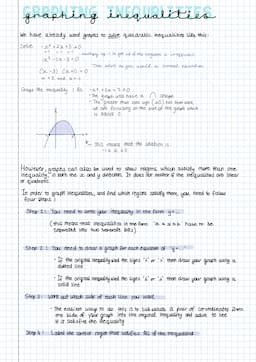 graphing inequalities
We have already used graphs to solve quadratic inequalities like this:
Solve -x² + 2x + 3 > 0
x² - 2x - 3 < 0
(x - 3)(x + 1) = 0
x = 3 and x = -1
Graph the inequality:
-x² + 2x + 3 > 0
- The graph will have a ∩ shape
This means that the solution is
-1 < x < 3
However, graphs can also be used to show regions which satisfy more than one
inequality, in both the x and y direction. It does not matter if the inequalities are linear
or quadratic.
In order to graph inequalities, and find which regions satisfy them, you need to follow
four steps:
Step 1: You need to write your inequality in the form 'y = ...'
(this means that inequalities in the form 'a < x < b' have to be
separated into two separate bits)
Step 2: You need to draw a graph for each equation of 'y = ...'
- If the original inequality used the signs '<' or '>' then draw your graph using a
dotted line
- If the original inequality used the signs '≤' or '≥' then draw your graph using a
solid line
Step 3: Work out which side of each line you want
- The easiest way to do this is to substitute a pair of coordinates from
one side of your graph into the original inequality and solve to see
if it satisfies the inequality
Step 4: Label the correct region that satisfies all of the inequalities